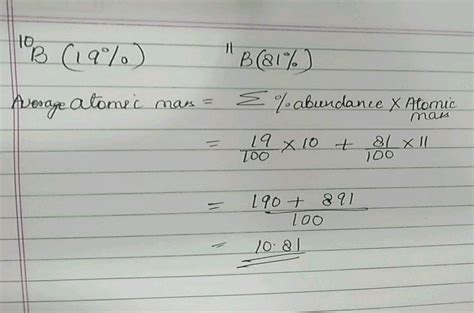 ¹⁰B (19%) ¹¹B(81%)
Average atomic mass = Σ % abundance × Atomic mass
= 19/100 × 10 + 81/100 × 11
= 190 + 891 / 100
= 10.81